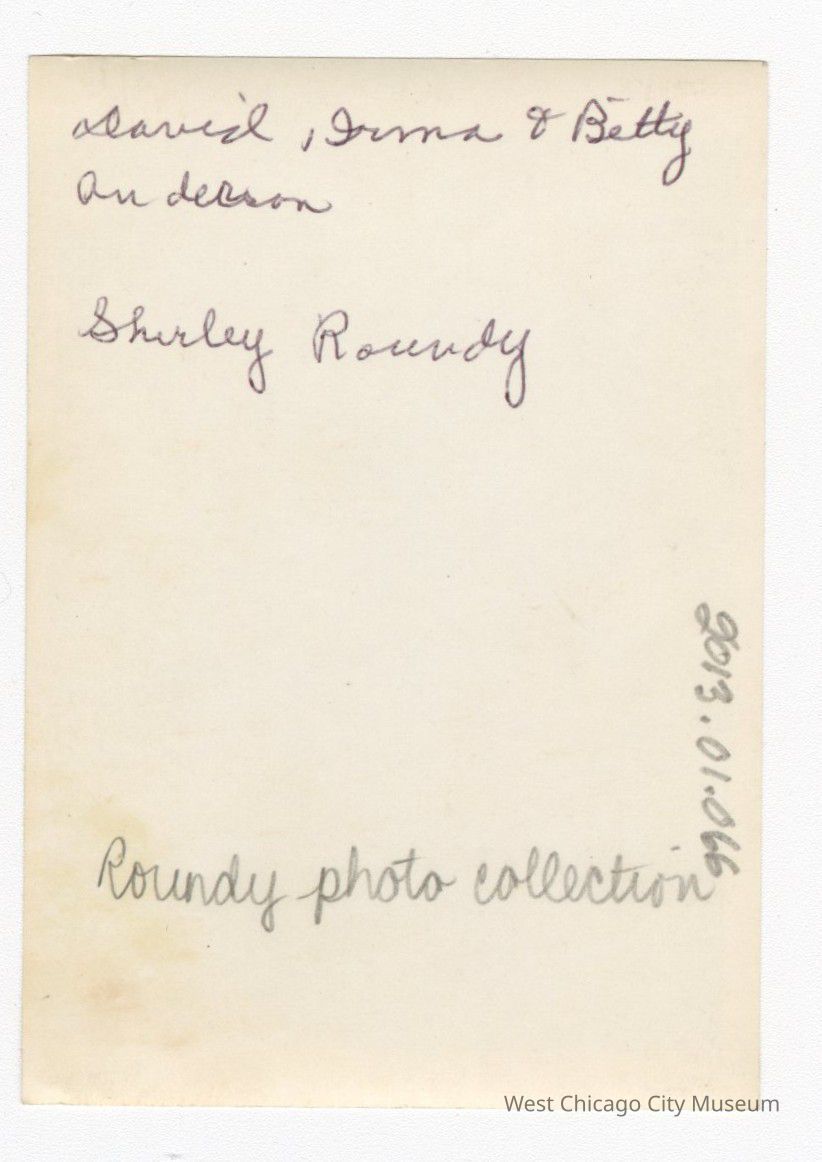 David, Irma & Betty
Anderson
Shirley Roundy
2013.01.066
Roundy photo collection
West Chicago City Museum